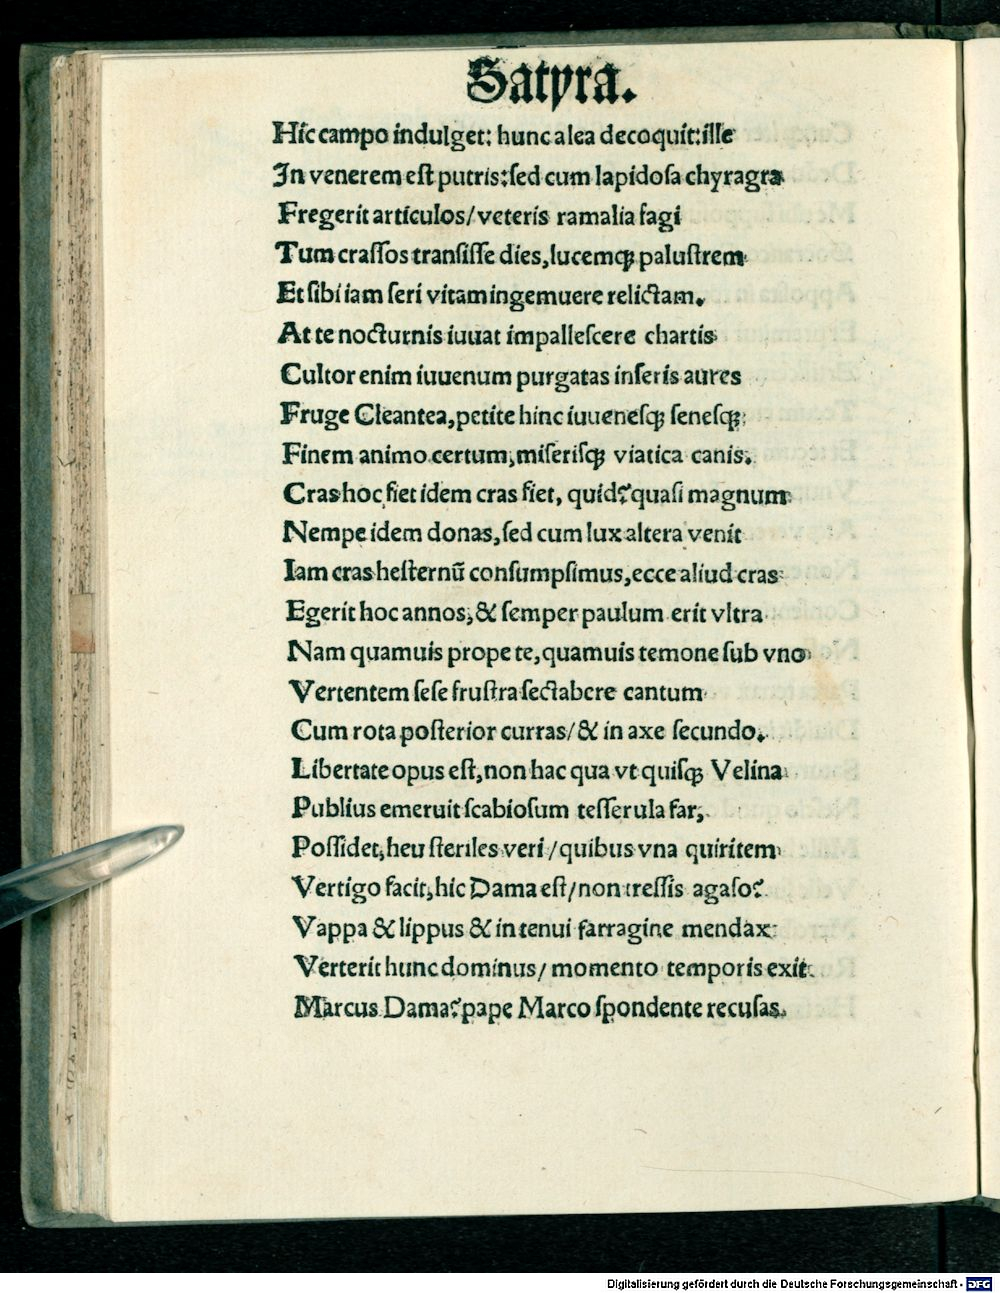 Satyra.
Hic campo indulget: hunc alea decoquit: ille
In venerem est putris: sed cum lapidosa chyragra
Fregerit articulos/ veteris ramalia fagi
Tum crassos transisse dies, lucemqꝫ palustrem
Et sibi iam seri vitam ingemuere relictam.
At te nocturnis iuuat impallescere chartis
Cultor enim iuuenum purgatas inseris aures
Fruge Cleantea, petite hinc iuuenesqꝫ senesqꝫ
Finem animo certum, miserisqꝫ viatica canis.
Cras hoc fiet idem cras fiet, quid? quasi magnum
Nempe idem donas, sed cum lux altera venit
Iam cras hesternū consumpsimus, ecce aliud cras
Egerit hoc annos, & semper paulum erit vltra
Nam quamuis prope te, quamuis temone sub vno
Vertentem sese frustra sectabere cantum
Cum rota posterior curras/ & in axe secundo.
Libertate opus est, non hac qua vt quisqꝫ Velina
Publius emeruit scabiosum tesserula far,
Possidet, heu steriles veri/ quibus vna quiritem
Vertigo facit, hic Dama est/ non tressis agaso?
Vappa & lippus & in tenui farragine mendax:
Verterit hunc dominus/ momento temporis exit
Marcus Dama? pape Marco spondente recusas.
Digitalisierung gefördert durch die Deutsche Forschungsgemeinschaft - DFG